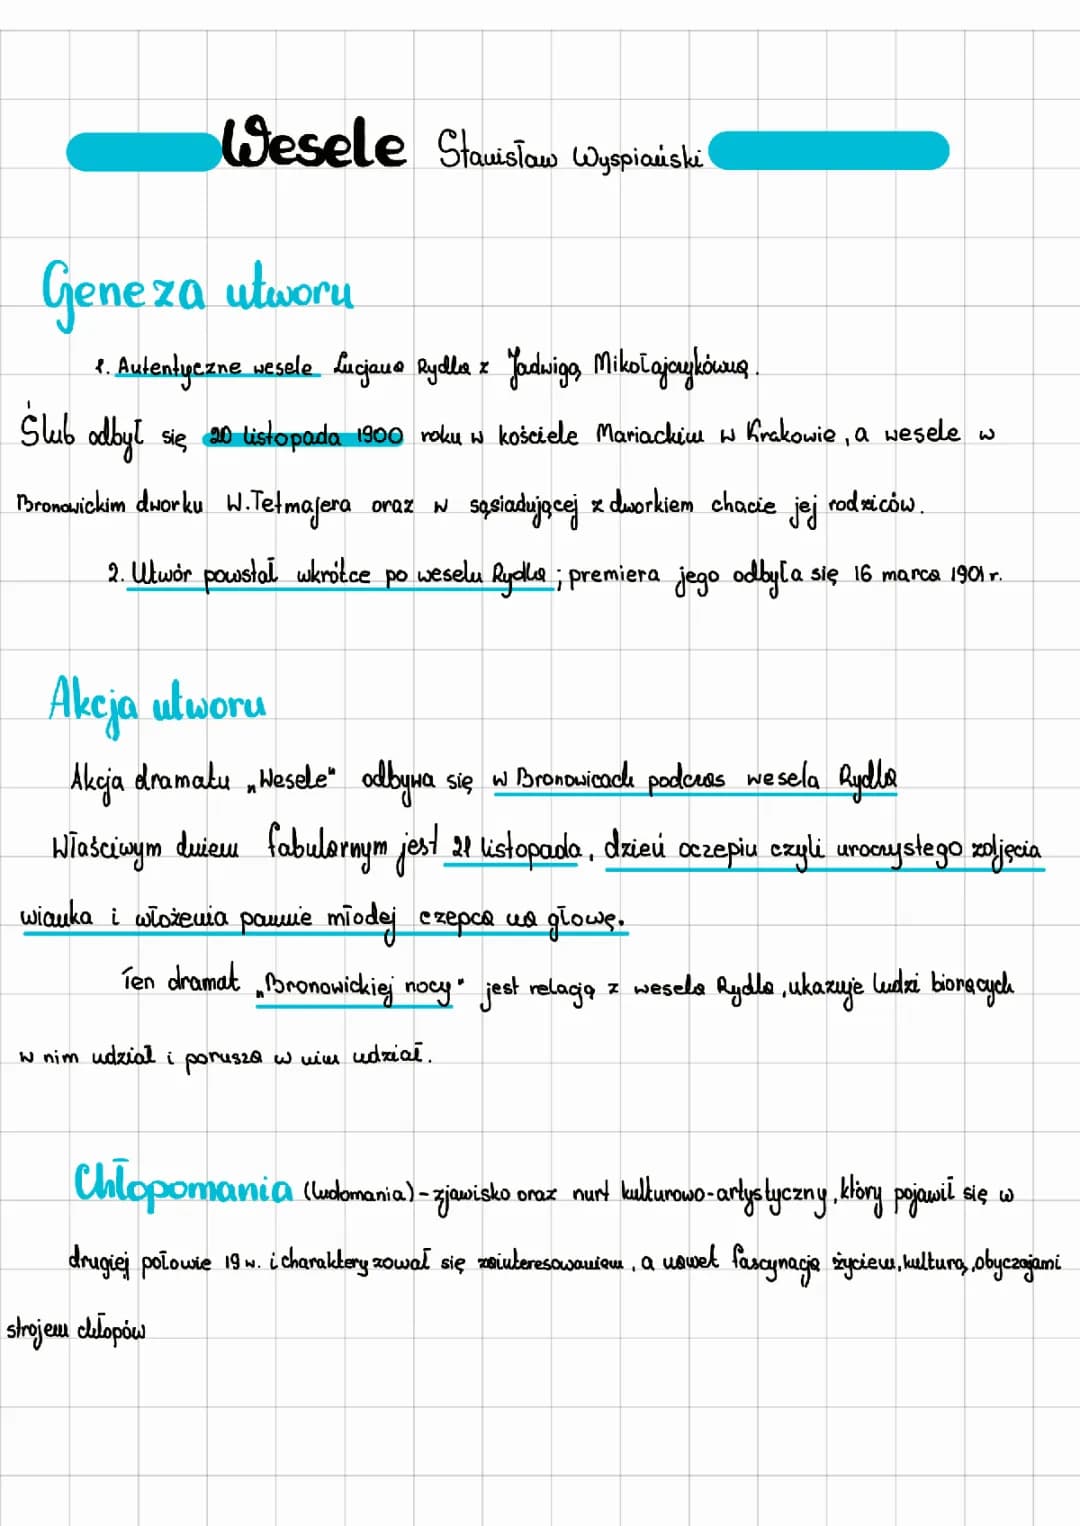 Wesele Stanisław Wyspiański
Geneza utworu
1. Autentyczne wesele Lucjana Rydla z Jadwigą Mikołajczykówną.
Ślub odbył się 20 listopada 1900 roku w kościele Mariackim w Krakowie, a wesele w
Bronowickim dworku W.Tetmajera oraz w sąsiadującej z dworkiem chacie jej rodziców.
2. Utwór powstał wkrótce po weselu Rydla; premiera jego odbyła się 16 marca 1901 r.
Akcja utworu
Akcja dramatu „Wesele" odbywa się w Bronowicach podczas wesela Rydla
Właściwym dniem fabularnym jest 21 listopada, dzień oczepin czyli uroczystego zdjęcia
wianka i włożenia pannie młodej czepca na głowę.
Ten dramat „Bronowickiej nocy" jest relacją z wesela Rydla, ukazuje ludzi biorących
w nim udział i porusza w nim udział.
Chłopomania (ludomania) - zjawisko oraz nurt kulturowo-artystyczny, który pojawił się w
drugiej połowie 19 w. i charakteryzował się zainteresowaniem, a nawet fascynacją życiem, kulturą, obyczajami
strojem chłopów